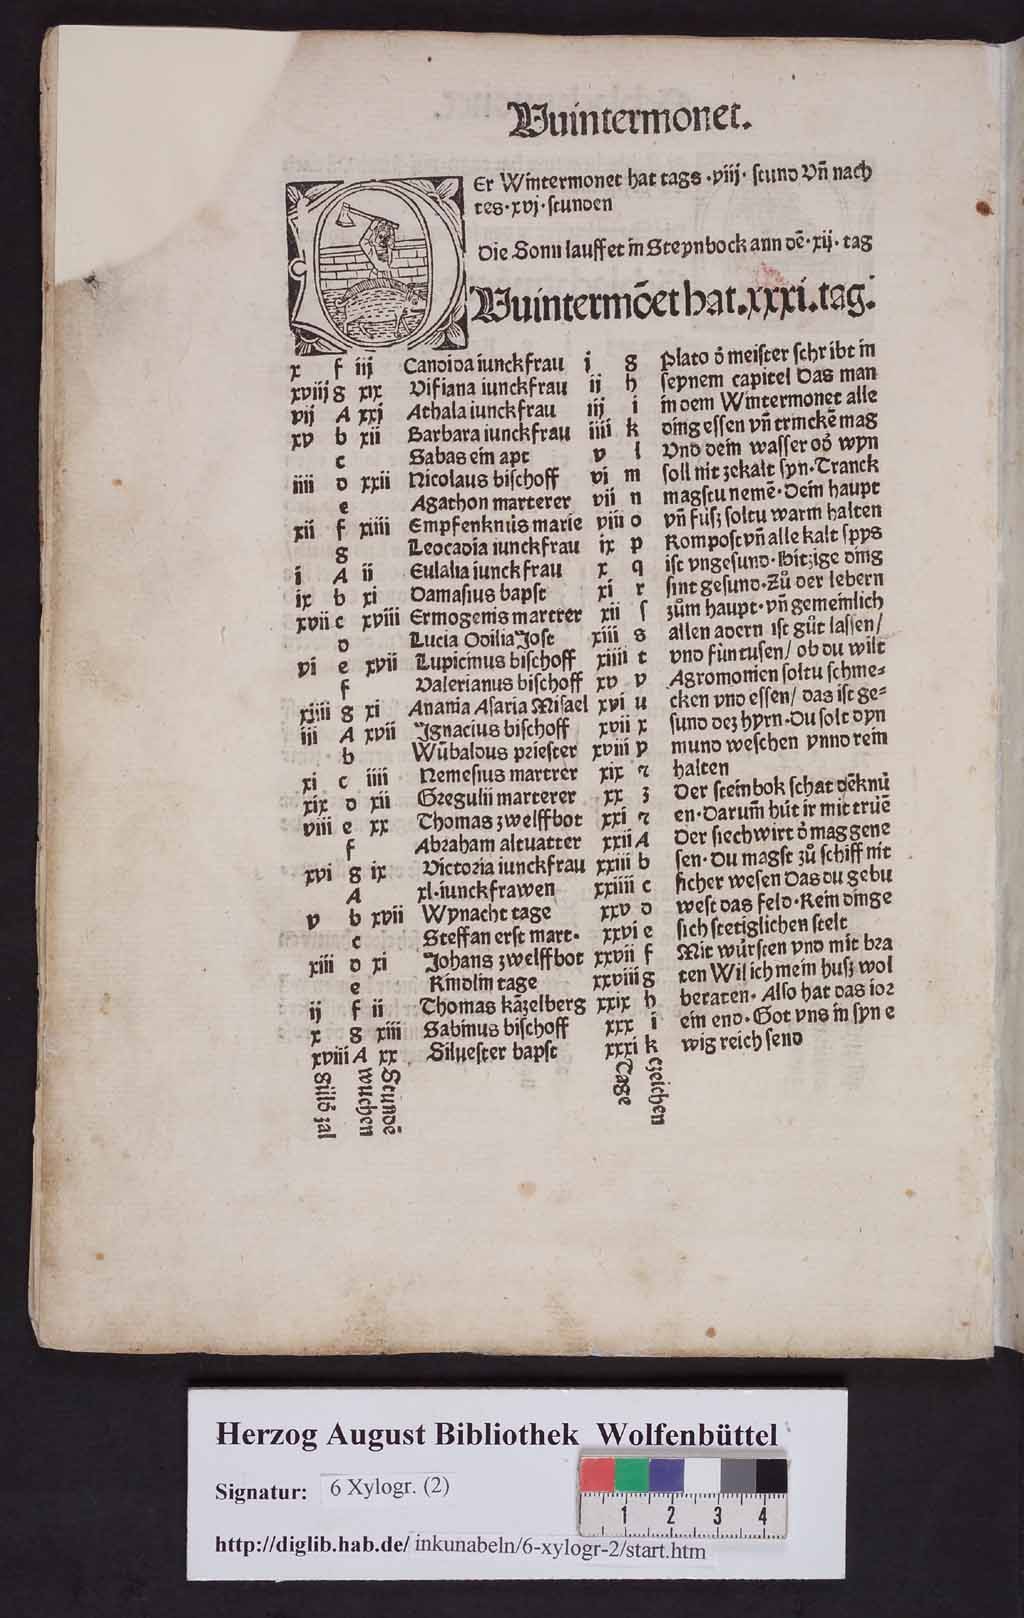 Wuintermonet.
Er Wintermonet hat tags ·viij· stund Vñ nach
tes·xvj·stunden
Die Sonn lauffet in Steynbock ann dē·xij·tag
Wuintermōet hat.xxxi.tag.
x f iij Candida iunckfrau j g Plato ð meister schribt in
xviij g xix Vifiana iunckfrau ii h seynem capitel Das man
vij A xxj Athala iunckfrau iij i in dem Wintermonet alle
xv b xii Barbara iunckfrau iiii k ding essen vñ trinckē mag
c Sabas ein apt v l Vnd dein wasser od wyn
iiii d xxii Nicolaus bischoff vi m soll nit zekalt syn·Tranck
e Agathon marterer vii n magstu nemē·Dein haupt
xii f xiiii Empfenknüs marie viii o vñ fuß soltu warm halten
g Leocadia iunckfrau ix p Kompost vñ alle kalt spys
i A ii Eulalia iunckfrau x q ist vngesund·Hitzige ding
ix b xi Damasius bapst xi r sint gesund·Zů der lebern
xvii c xviii Ermogenis martrer xii ſ zům haupt·vñ gemeinlich
d Lucia Odilia Jost xiii s allen adern ist gůt lassen/
vi e xvii Lupicinus bischoff xiiii t vnd füntusen/ ob du wilt
f Valerianus bischoff xv v Agromonien soltu schme=
xiiii g xi Anania Asaria Misael xvi u cken vnd essen/ das ist ge=
iii A xvii Ignacius bischoff xvii x sund dez hyrn·Du solt dyn
b Wūbaldus priester xviii y mund weschen vnnd rein
xi c iiii Nemesius martrer xix z halten
xix d xii Gregulii marterer xx ʒ Der steinbok schat dē knü
viii e xx Thomas zwelffbot xxi ꝛ en·Darum̄ hüt ir mit truē
f Abraham altuatter xxii A Der siech wirt ð mag gene
xvi g ix Victoria iunckfrau xxiii b sen·Du magst zů schiff nit
A xl·iunckfrawen xxiiii c sicher wesen Das du gebu
v b xvii Wynacht tage xxv d west das feld·Rein dinge
c Steffan erst mart· xxvi e sich stetiglichen stelt
xiii d xi Johans zwelffbot xxvii f Mit würsten vnd mit bra
e Kindlin tage xxviii g ten Wil ich mein huß wol
ij f ii Thomas kāzelberg xxix h beraten·Also hat das ior
x g xiii Sabinus bischoff xxx i ein end·Got vns in syn e
xviii A xx Siluester bapst xxxi k wig reich send
Gülð zal
wuchen
Stundē
Tage
czeichen
Herzog August Bibliothek Wolfenbüttel
Signatur: 6 Xylogr. (2)
1 2 3 4
http://diglib.hab.de/ inkunabeln/6-xylogr-2/start.htm